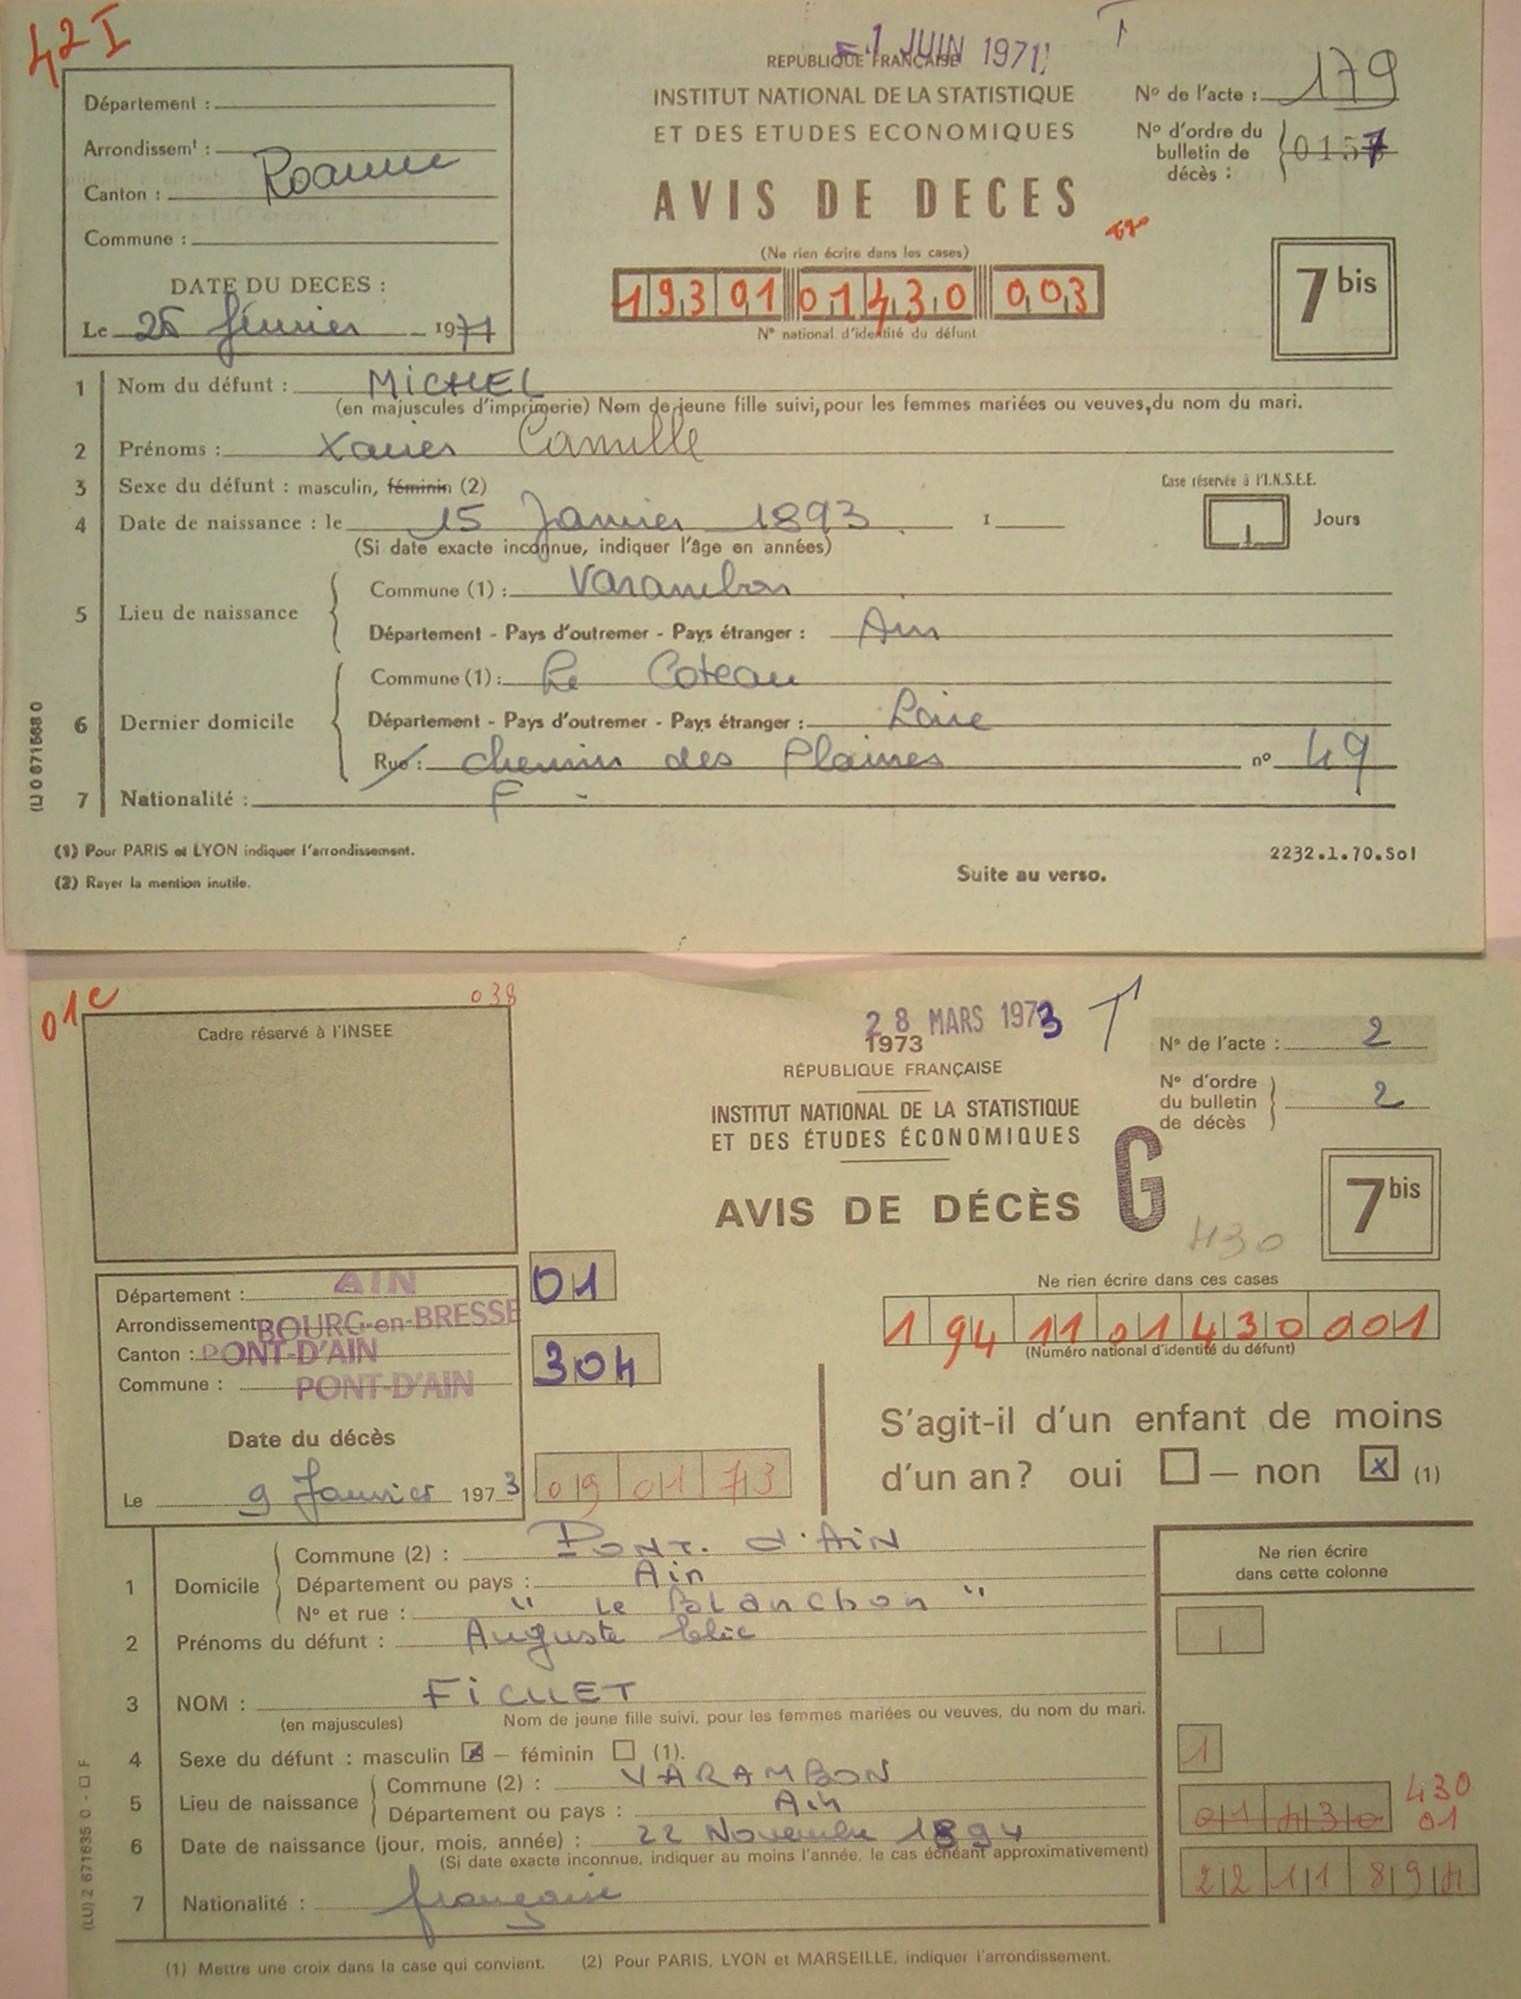 42 I
-1 JUIN 1971
T
REPUBLIQUE FRANÇAISE
INSTITUT NATIONAL DE LA STATISTIQUE
ET DES ETUDES ECONOMIQUES
AVIS DE DECES
Nº de l'acte : 179
Nº d'ordre du bulletin de décès : 0157
Département :
Arrondissemt :
Canton : Roanne
Commune :
DATE DU DECES :
Le 26 février 1971
(Ne rien écrire dans les cases)
1 93 01 01 430 003
Nº national d'identité du défunt
7 bis
1 Nom du défunt : MICHEL
(en majuscules d'imprimerie) Nom de jeune fille suivi, pour les femmes mariées ou veuves, du nom du mari.
2 Prénoms : Xavier Camille
3 Sexe du défunt : masculin, féminin (2)
Case réservée à l'I.N.S.E.E.
4 Date de naissance : le 15 Janvier 1893 1
Jours
(Si date exacte inconnue, indiquer l'âge en années)
5 Lieu de naissance
Commune (1) : Varambon
Département - Pays d'outremer - Pays étranger : Ain
6 Dernier domicile
Commune (1) : Le Coteau
Département - Pays d'outremer - Pays étranger : Loire
Rue : chemin des Plaines nº 49
7 Nationalité : F -
(LI) 0 671568 0
(1) Pour PARIS et LYON indiquer l'arrondissement.
(2) Rayer la mention inutile.
Suite au verso.
2232.1.70.Sol
01e
038
Cadre réservé à l'INSEE
28 MARS 1973
T
1973
RÉPUBLIQUE FRANÇAISE
INSTITUT NATIONAL DE LA STATISTIQUE
ET DES ÉTUDES ÉCONOMIQUES
AVIS DE DÉCÈS
G
430
Nº de l'acte : 2
Nº d'ordre du bulletin de décès 2
7 bis
Département : AIN 01
Arrondissement : BOURG-en-BRESSE
Canton : PONT-D'AIN 304
Commune : PONT-D'AIN
Date du décès
Le 9 Janvier 1973 09 01 73
Ne rien écrire dans ces cases
1 94 11 01 430 001
(Numéro national d'identité du défunt)
S'agit-il d'un enfant de moins
d'un an ? oui — non x (1)
1 Domicile
Commune (2) : PONT. d'AiN
Département ou pays : Ain
Nº et rue : " Le Blanchon "
2 Prénoms du défunt : Auguste
3 NOM : FiCHET
(en majuscules) Nom de jeune fille suivi, pour les femmes mariées ou veuves, du nom du mari.
4 Sexe du défunt : masculin x — féminin (1).
5 Lieu de naissance
Commune (2) : VARAMBON
Département ou pays : Ain
6 Date de naissance (jour, mois, année) : 22 Novembre 1894
(Si date exacte inconnue, indiquer au moins l'année, le cas échéant approximativement)
7 Nationalité : française
Ne rien écrire
dans cette colonne
1
01 430
430
01
22 11 894
(LU) 2 671635 0 - F
(1) Mettre une croix dans la case qui convient. (2) Pour PARIS, LYON et MARSEILLE, indiquer l'arrondissement.